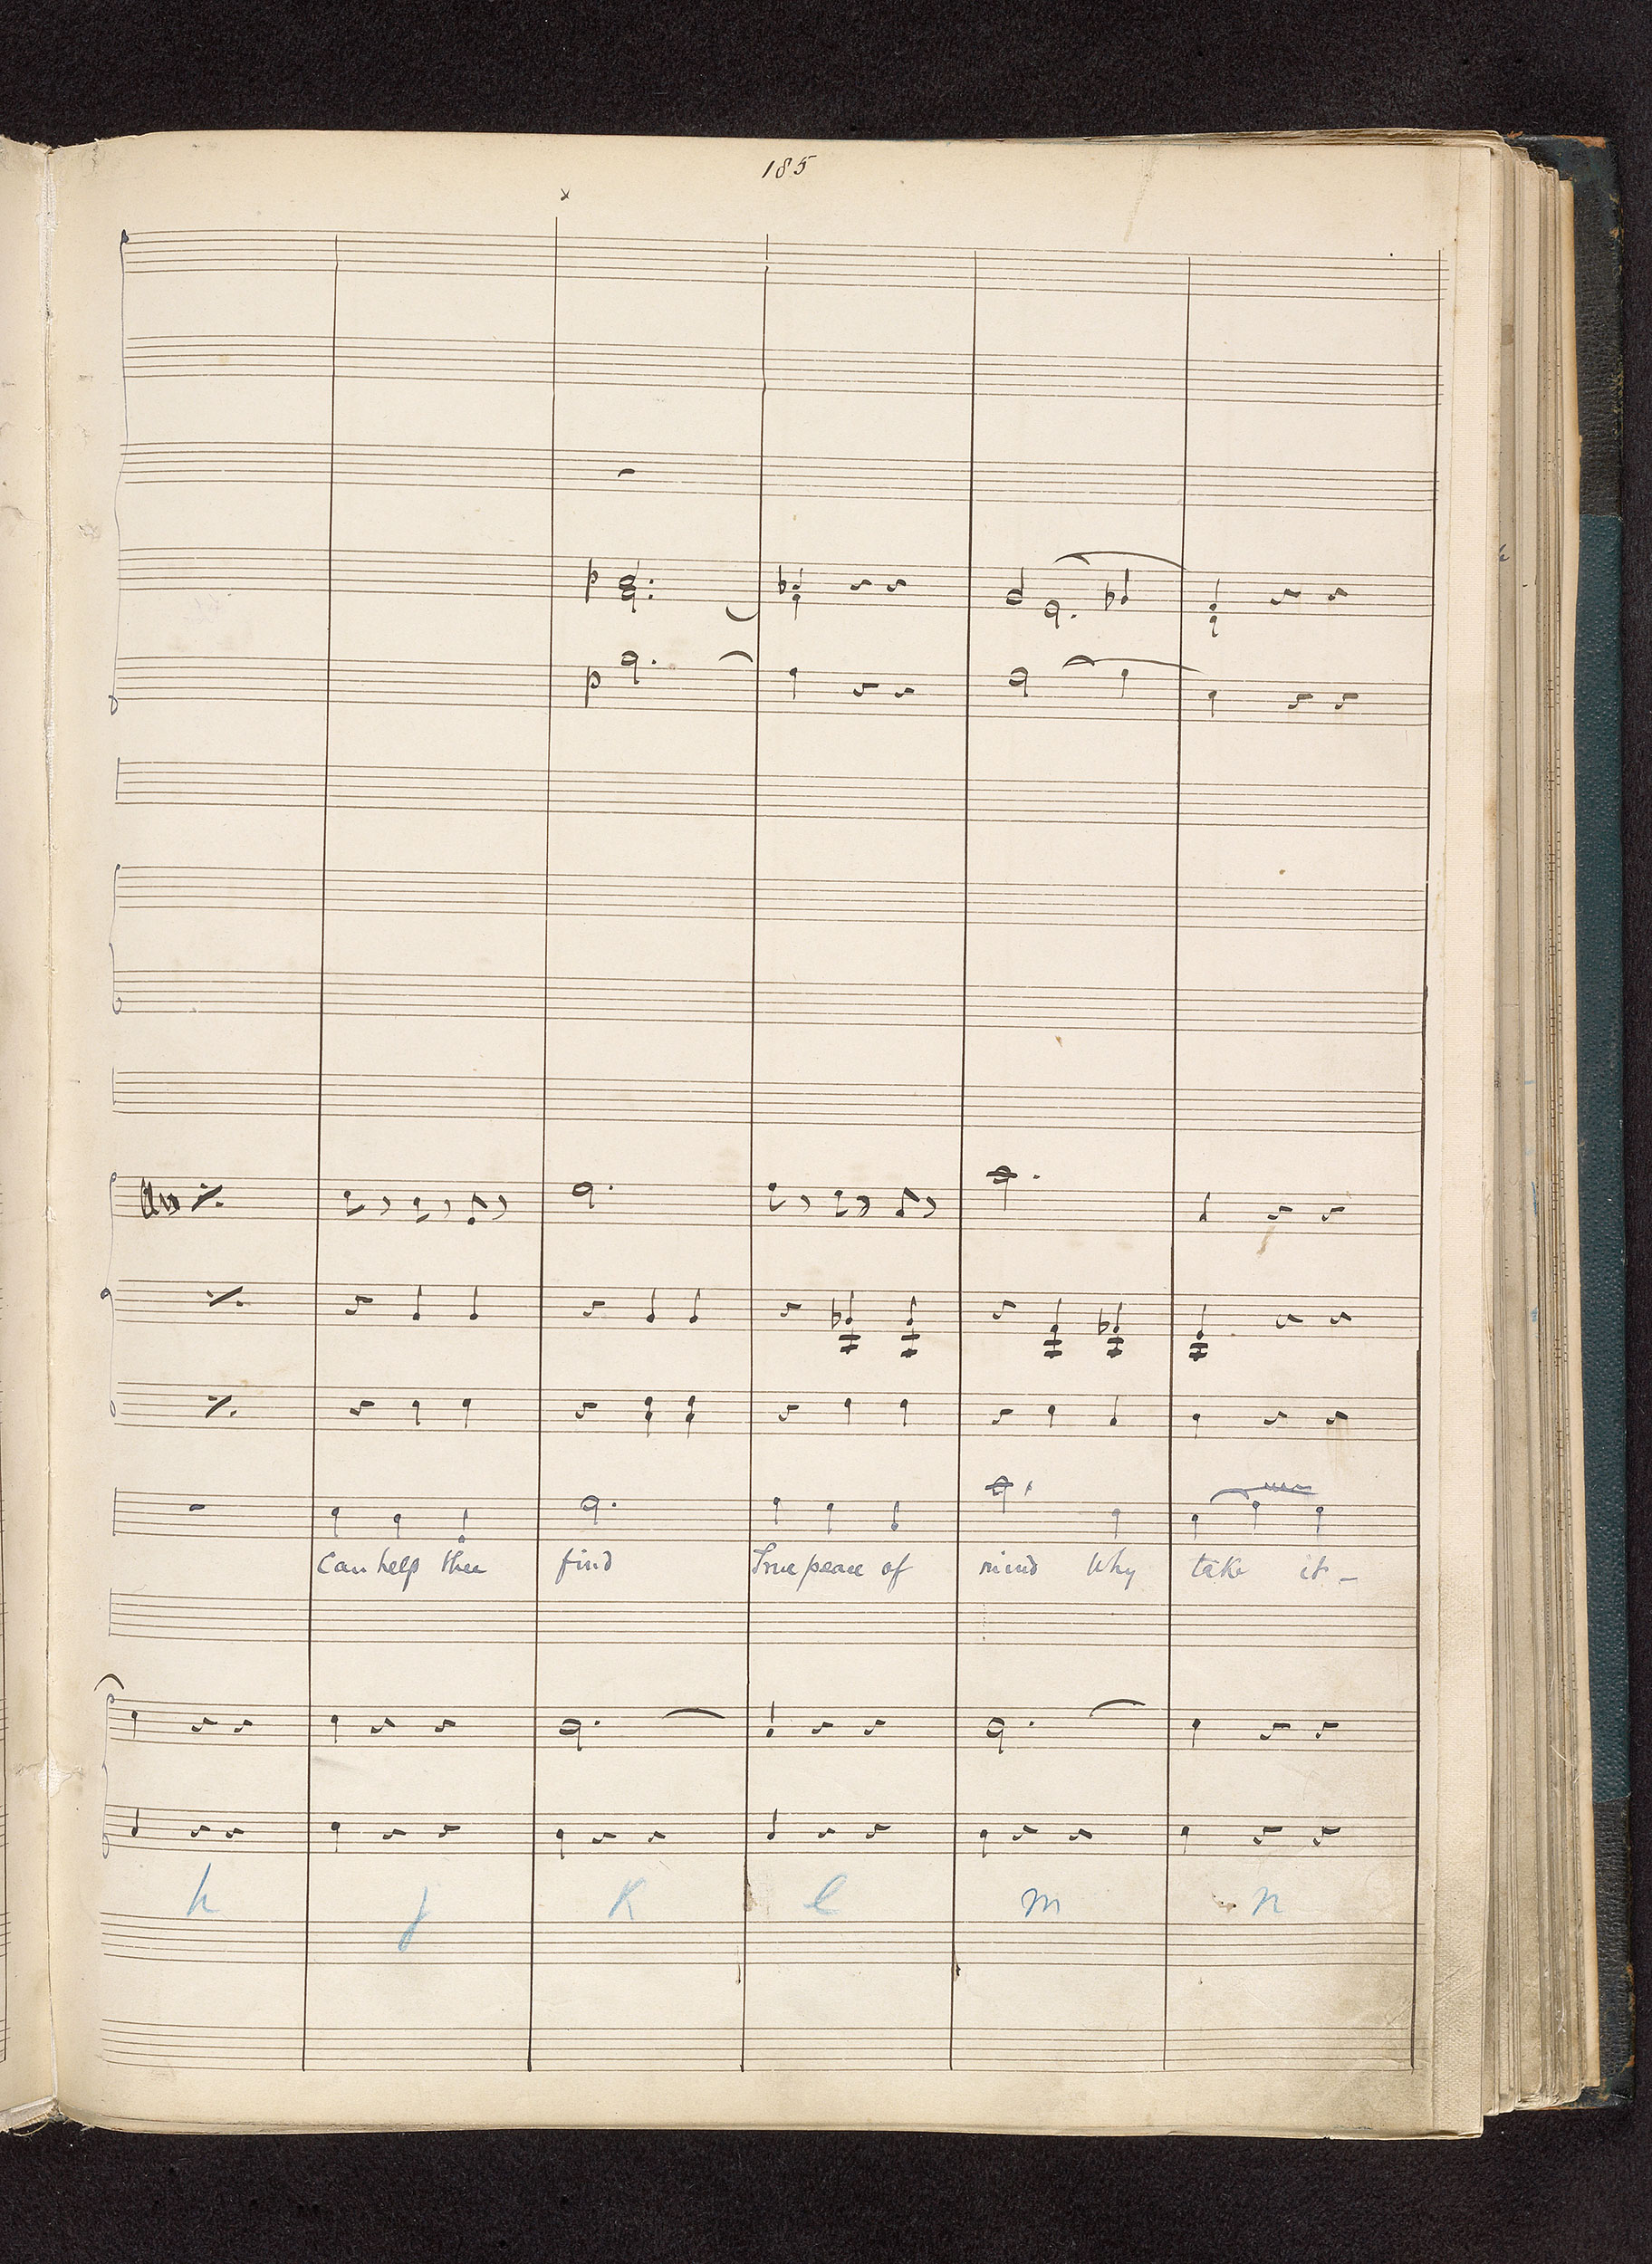 185
x
p
p
Can help thee find True peace of mind Why take it –
h j K l m n